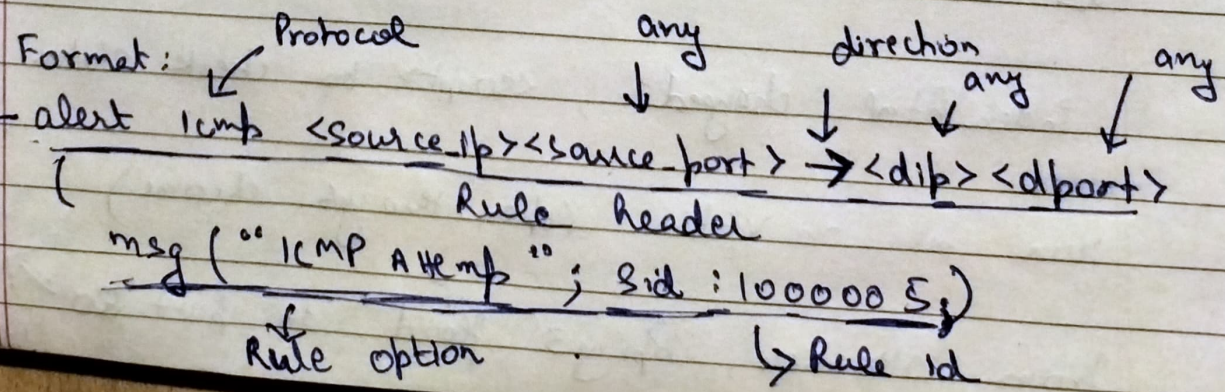 Format: Protocol any direction any
any
- alert icmp <source_ip><source_port> → <dip> <dport>
( Rule header
msg ("ICMP Attemp"; Sid : 1000005;)
Rule option ↳ Rule id